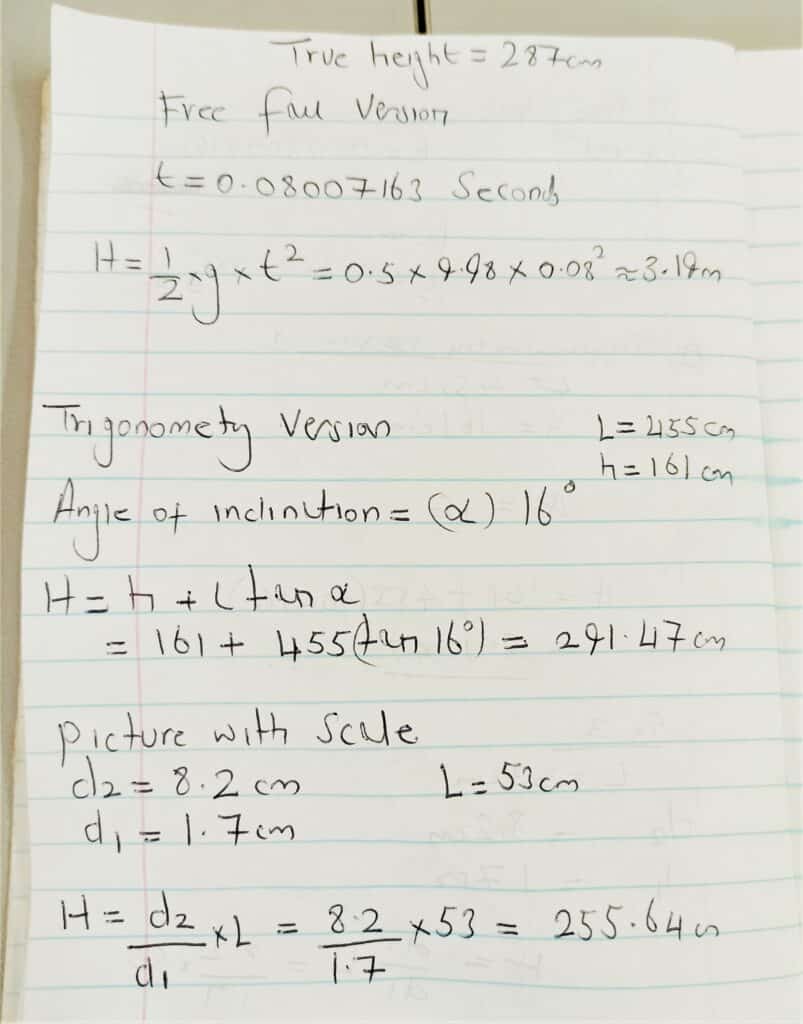 True height = 287cm
Free fall Version
t = 0.08007163 Seconds
H = 1/2 × g × t² = 0.5 × 9.98 × 0.08² ≈ 3.19m
Trigonomety Version L = 455 cm
h = 161 cm
Angle of inclinition = (α) 16°
H = h + L tan α
= 161 + 455(tan 16°) = 291.47 cm
Picture with Scale
d2 = 8.2 cm L = 53cm
d1 = 1.7cm
H = d2/d1 × L = 8.2/1.7 × 53 = 255.64 cm